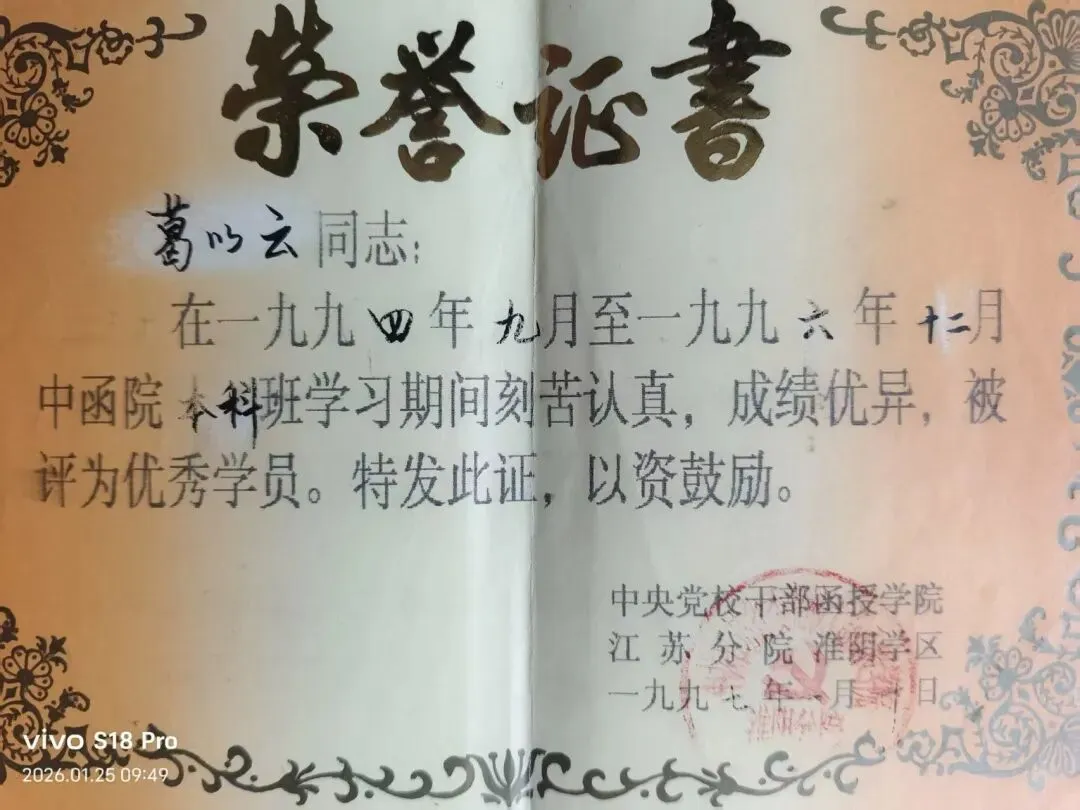 荣誉证書
葛以云同志：
在一九九四年九月至一九九六年十二月
中函院本科班学习期间刻苦认真，成绩优异，被
评为优秀学员。特发此证，以资鼓励。
中央党校干部函授学院
江苏分院淮阴学区
一九九七年一月 日
vivo S18 Pro
2026.01.25 09:49